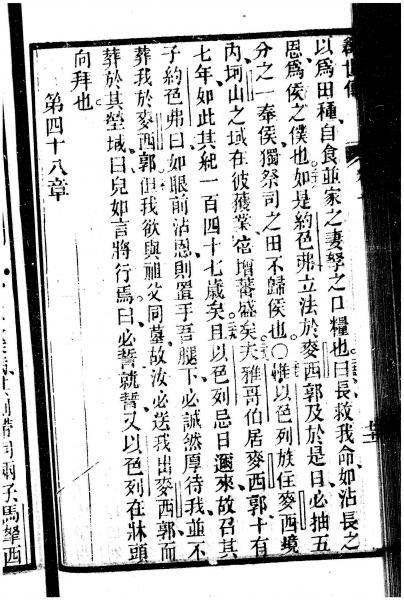 以爲田種自食並家之妻孥之口糧也曰長救我命如沾長之
恩爲侯之僕也如是約色弗立法於麥西郭及於是日必抽五
分之一奉侯獨祭司之田不歸侯也〇惟以色列族住麥西境
內坷山之域在彼獲業宏增蕃盛矣夫雅哥伯居麥西郭十有
七年如此其紀一百四十七歲矣且以色列忌日邇來故召其
子約色弗曰如眼前沾恩則置手吾腿下必誠然厚待我並不
葬我於麥西郭但我欲與祖父同墓故汝必送我出麥西郭而
葬於其塋域曰兒如言將行焉曰必誓就誓又以色列在牀頭
向拜也
第四十八章
帶同兩子馬拏西